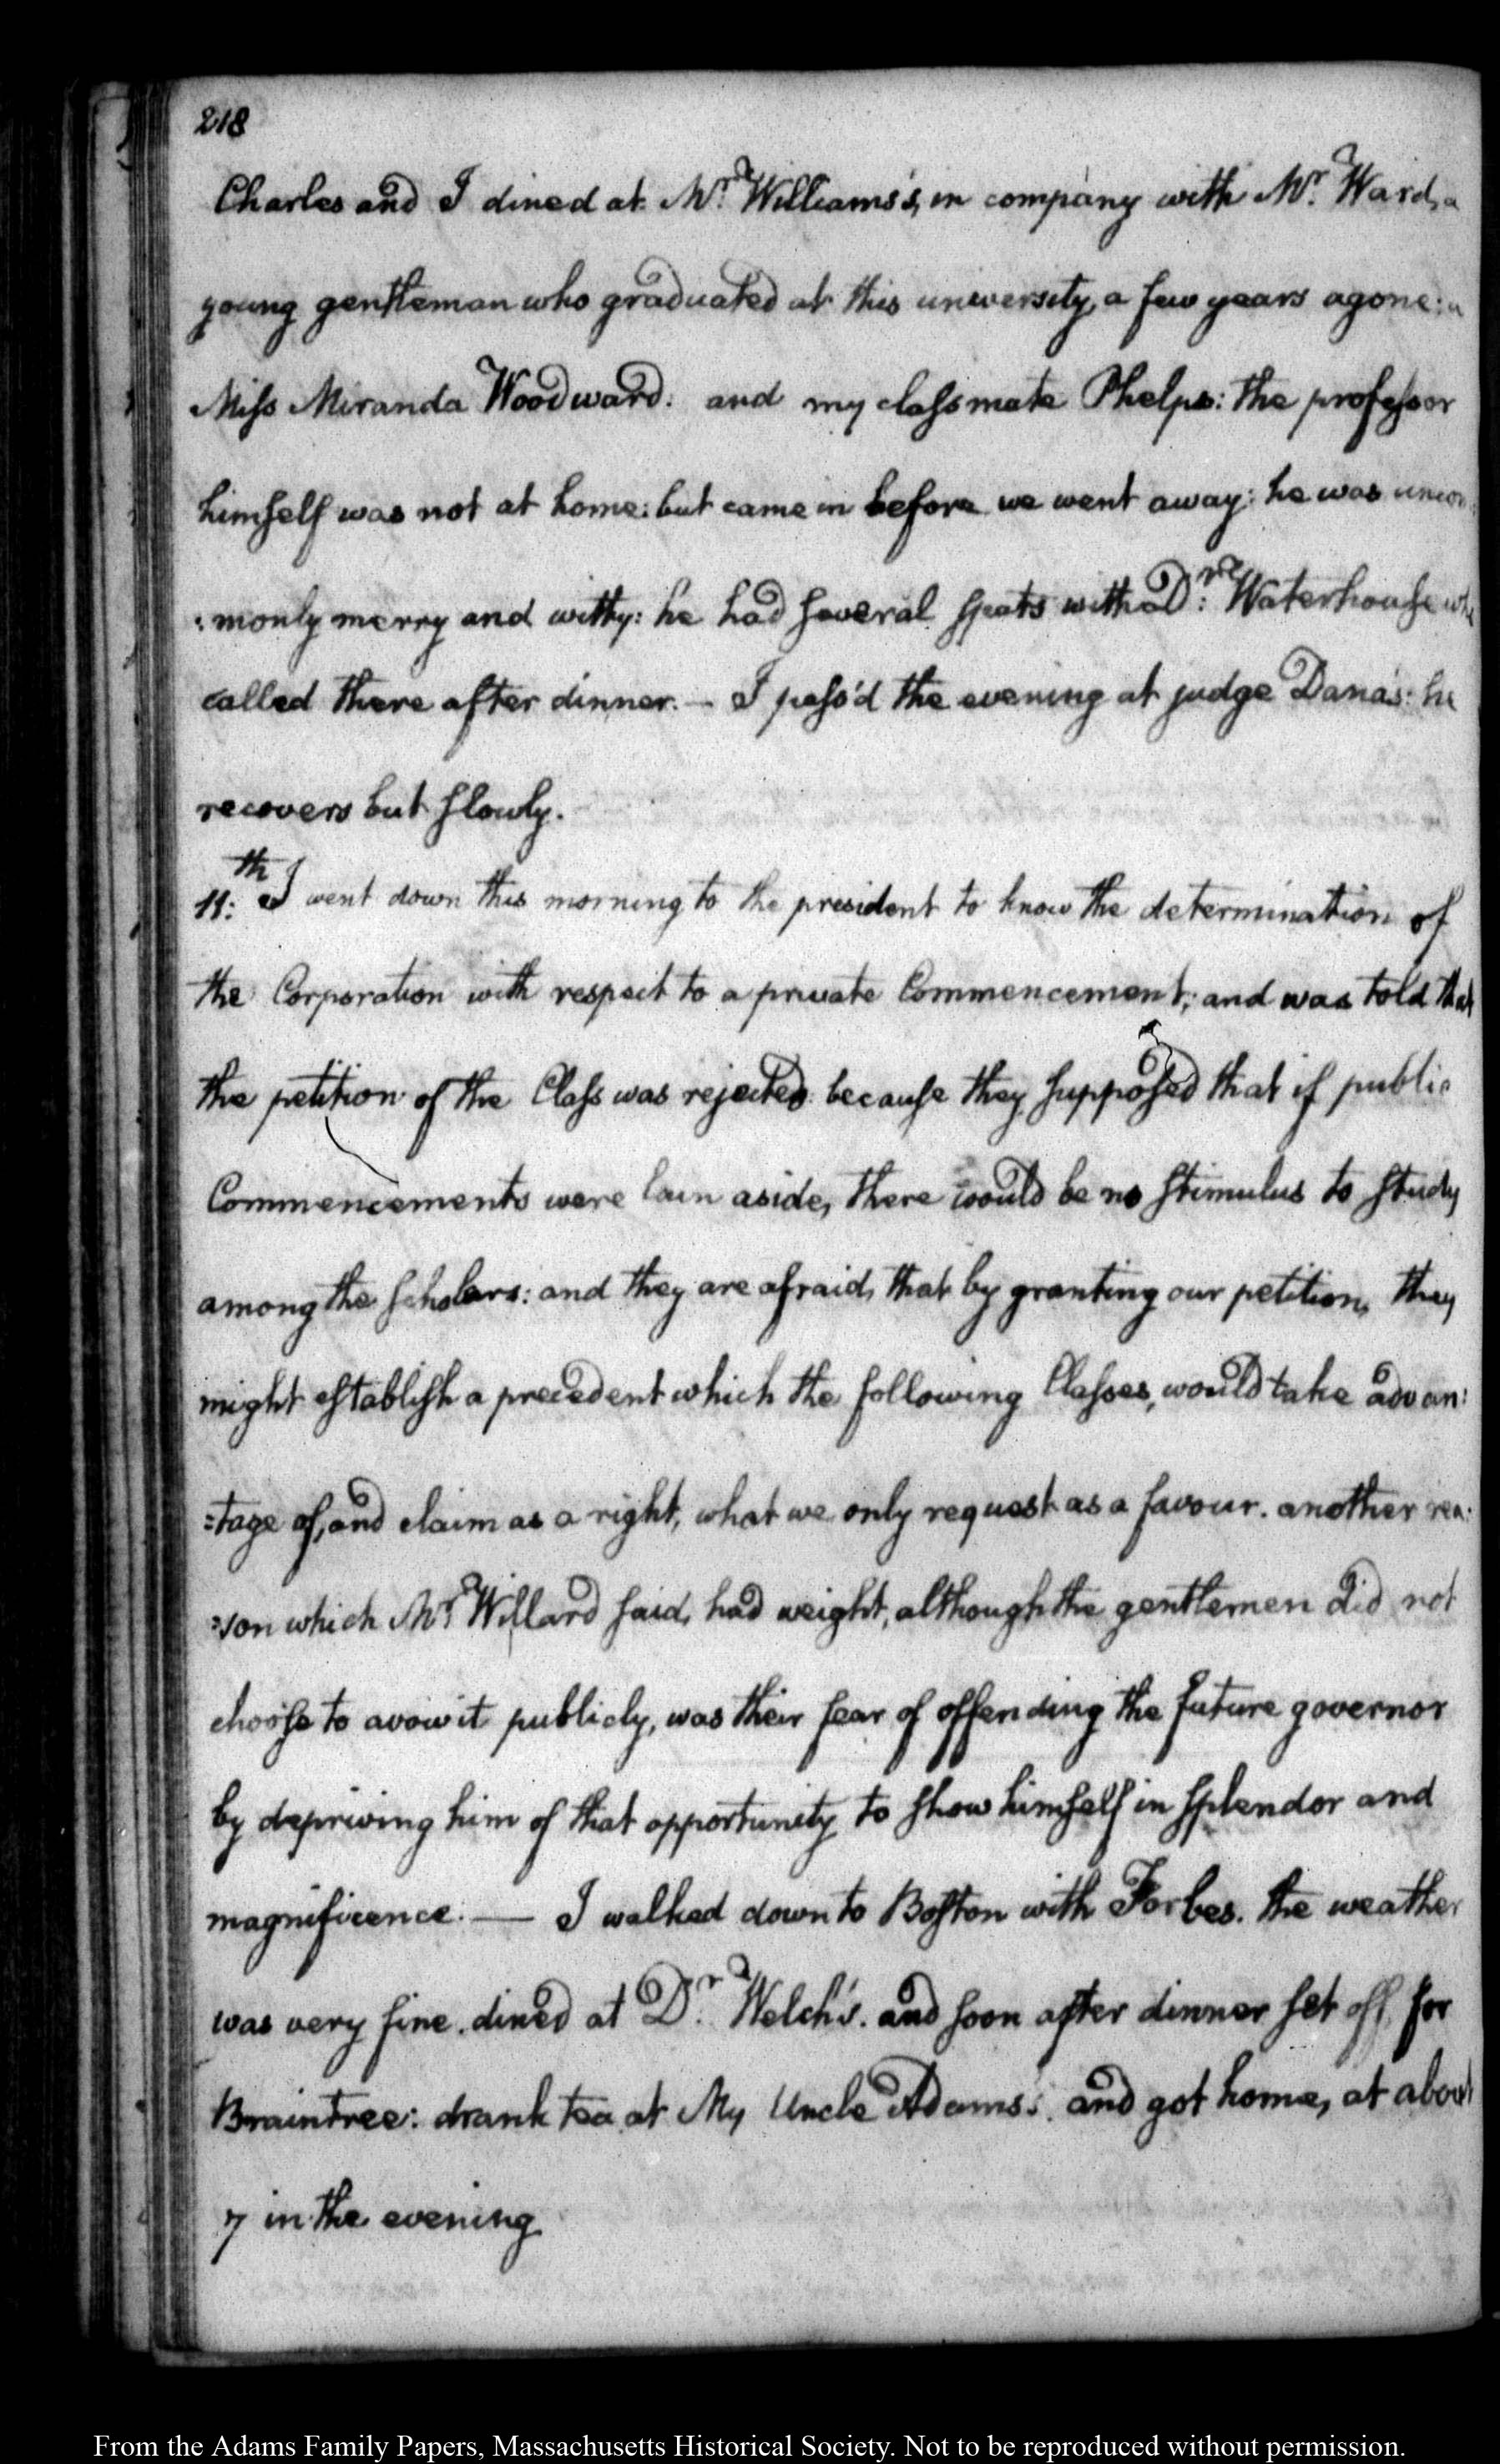 218
Charles and I dined at Mr. Williams's, in company with Mr. Ward, a
young gentleman who graduated at this university, a few years agone:
Miss Miranda Woodward: and my classmate Phelps: the professor
himself was not at home: but came in before we went away: he was uncom
:monly merry and witty: he had several spats with Dr: Waterhouse who
called there after dinner. — I pass'd the evening at judge Dana's: he
recovers but slowly.
11:th I went down this morning to the president to know the determination of
the Corporation with respect to a private Commencement; and was told that
the petition of the Class was rejected because they supposed that if public
Commencements were lain aside, there would be no stimulus to study
among the scholars: and they are afraid, that by granting our petition, they
might establish a precedent which the following Classes, would take advan:
:tage of, and claim as a right, what we only request as a favour. another rea:
:son which Mr. Willard said, had weight, although the gentlemen did not
choose to avow it publicly, was their fear of offending the future governor
by depriving him of that opportunity to show himself in splendor and
magnificence. — I walked down to Boston with Forbes. the weather
was very fine. dined at Dr. Welch's. and soon after dinner set off, for
Braintree: drank tea at My Uncle Adams's. and got home, at about
7 in the evening
From the Adams Family Papers, Massachusetts Historical Society. Not to be reproduced without permission.